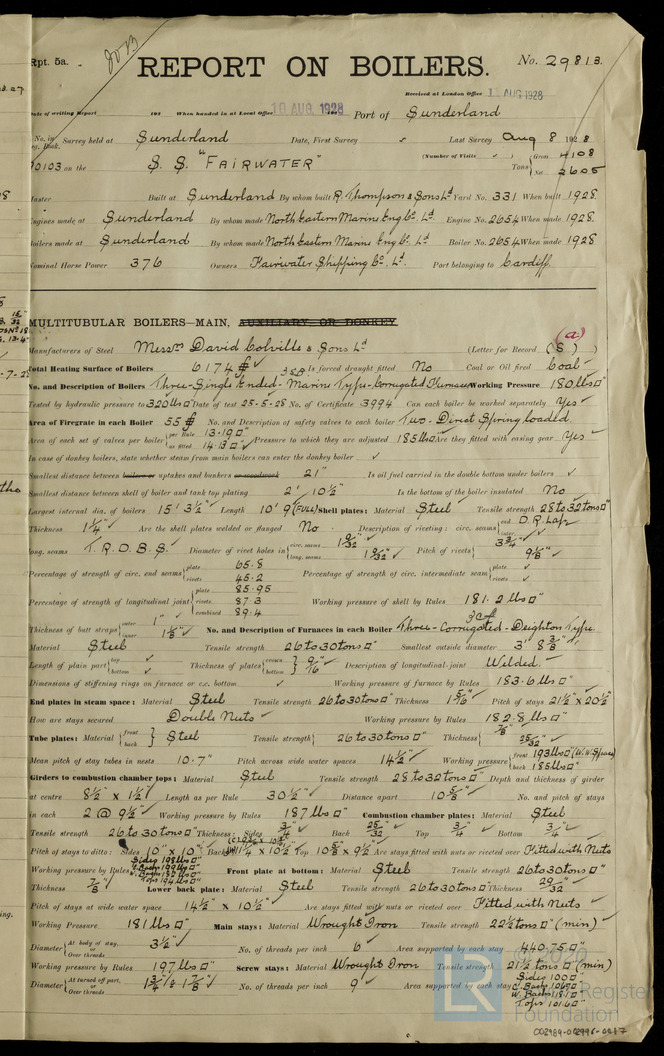 Rpt. 5a.
REPORT ON BOILERS.
No. 29813.
Received at London Office AUG 1928
Date of writing Report 192 When handed in at Local Office 10 AUG 1928 Port of Sunderland
No. in Reg. Book. Survey held at Sunderland Date, First Survey Last Survey Aug 8 1928
on the S. S. "FAIRWATER" (Number of Visits ) Tons { Gross 4108 Net 2605
Master Built at Sunderland By whom built R. Thompson & Sons Ld Yard No. 331 When built 1928
Engines made at Sunderland By whom made North Eastern Marine Eng Co. Ld. Engine No. 2654 When made 1928
Boilers made at Sunderland By whom made North Eastern Marine Eng Co. Ld. Boiler No. 2654 When made 1928
Nominal Horse Power 376 Owners Fairwater Shipping Co. Ld. Port belonging to Cardiff.
MULTITUBULAR BOILERS—MAIN, AUXILIARY OR DONKEY
(a)
Manufacturers of Steel Messrs David Colville & Sons Ld (Letter for Record (S) )
Total Heating Surface of Boilers 6174 Is forced draught fitted No Coal or Oil fired Coal
No. and Description of Boilers Three-Single Ended-Marine Type-Corrugated Furnaces Working Pressure 180 lbs □"
Tested by hydraulic pressure to 320 lbs □" Date of test 25-5-28 No. of Certificate 3994 Can each boiler be worked separately Yes
Area of Firegrate in each Boiler 55 No. and Description of safety valves to each boiler Two-Direct Spring loaded
Area of each set of valves per boiler { per Rule 13.19 □" as fitted 14.13 □" Pressure to which they are adjusted 185 lbs Are they fitted with easing gear Yes
In case of donkey boilers, state whether steam from main boilers can enter the donkey boiler
Smallest distance between boilers or uptakes and bunkers or woodwork 21" Is oil fuel carried in the double bottom under boilers
Smallest distance between shell of boiler and tank top plating 2' 10½" Is the bottom of the boiler insulated No
Largest internal dia. of boilers 15' 3½" Length 10' 9" (FULL) Shell plates: Material Steel Tensile strength 28 to 32 tons □"
Thickness 1¼" Are the shell plates welded or flanged No Description of riveting: circ. seams { end D.R. Lap inter.
long. seams T.R.D.B.S. Diameter of rivet holes in { circ. seams 1 9/32 long. seams 1 9/32 Pitch of rivets { 3¾" 9⅛"
Percentage of strength of circ. end seams { plate 65.8 rivets 45.2 Percentage of strength of circ. intermediate seam { plate rivets
Percentage of strength of longitudinal joint { plate 85.95 rivets 87.3 combined 89.4 Working pressure of shell by Rules 181.2 lbs □"
Thickness of butt straps { outer 1" inner 1⅛" No. and Description of Furnaces in each Boiler Three-Corrugated-Deighton Type.
Material Steel Tensile strength 26 to 30 tons □" Smallest outside diameter 3' 8⅜"
Length of plain part { top bottom Thickness of plates { crown bottom 9/16" Description of longitudinal joint Welded.
Dimensions of stiffening rings on furnace or c.c. bottom Working pressure of furnace by Rules 183.6 lbs □"
End plates in steam space: Material Steel Tensile strength 26 to 30 tons □" Thickness 1 5/16" Pitch of stays 21½" x 20½"
How are stays secured Double Nuts Working pressure by Rules 182.8 lbs □"
Tube plates: Material { front back } Steel Tensile strength { 26 to 30 tons □" Thickness { 7/8" 25/32"
Mean pitch of stay tubes in nests 10.7" Pitch across wide water spaces 14½" Working pressure { front 193 lbs □" (W.W. Space) back 185 lbs □"
Girders to combustion chamber tops: Material Steel Tensile strength 28 to 32 tons □" Depth and thickness of girder
at centre 8½" x 1½" Length as per Rule 30½" Distance apart 10⅝" No. and pitch of stays
in each 2 @ 9½" Working pressure by Rules 187 lbs □" Combustion chamber plates: Material Steel
Tensile strength 26 to 30 tons □" Thickness: Sides 3/4" Back 25/32" Top 3/4" Bottom 3/4"
Pitch of stays to ditto: Sides 10" x 10" Back Top 10⅝ x 9½ Are stays fitted with nuts or riveted over Fitted with Nuts
Working pressure by Rules Front plate at bottom: Material Steel Tensile strength 26 to 30 tons □"
Thickness 7/8" Lower back plate: Material Steel Tensile strength 26 to 30 tons □" Thickness 29/32"
Pitch of stays at wide water space 14½" x 10½" Are stays fitted with nuts or riveted over Fitted with Nuts
Working Pressure 181 lbs □" Main stays: Material Wrought Iron Tensile strength 22½ tons □" (min)
Diameter { At body of stay, or Over threads 3½" No. of threads per inch 6 Area supported by each stay 440.75 □"
Working pressure by Rules 197 lbs □" Screw stays: Material Wrought Iron Tensile strength 21½ tons □" (min)
Diameter { At turned off part, or Over threads 1¾" & 1⅞" No. of threads per inch 9 Area supported by each stay Sides 100 □"
Tops 101.6 □"
LR
Register
Foundation
002989-002996-0017